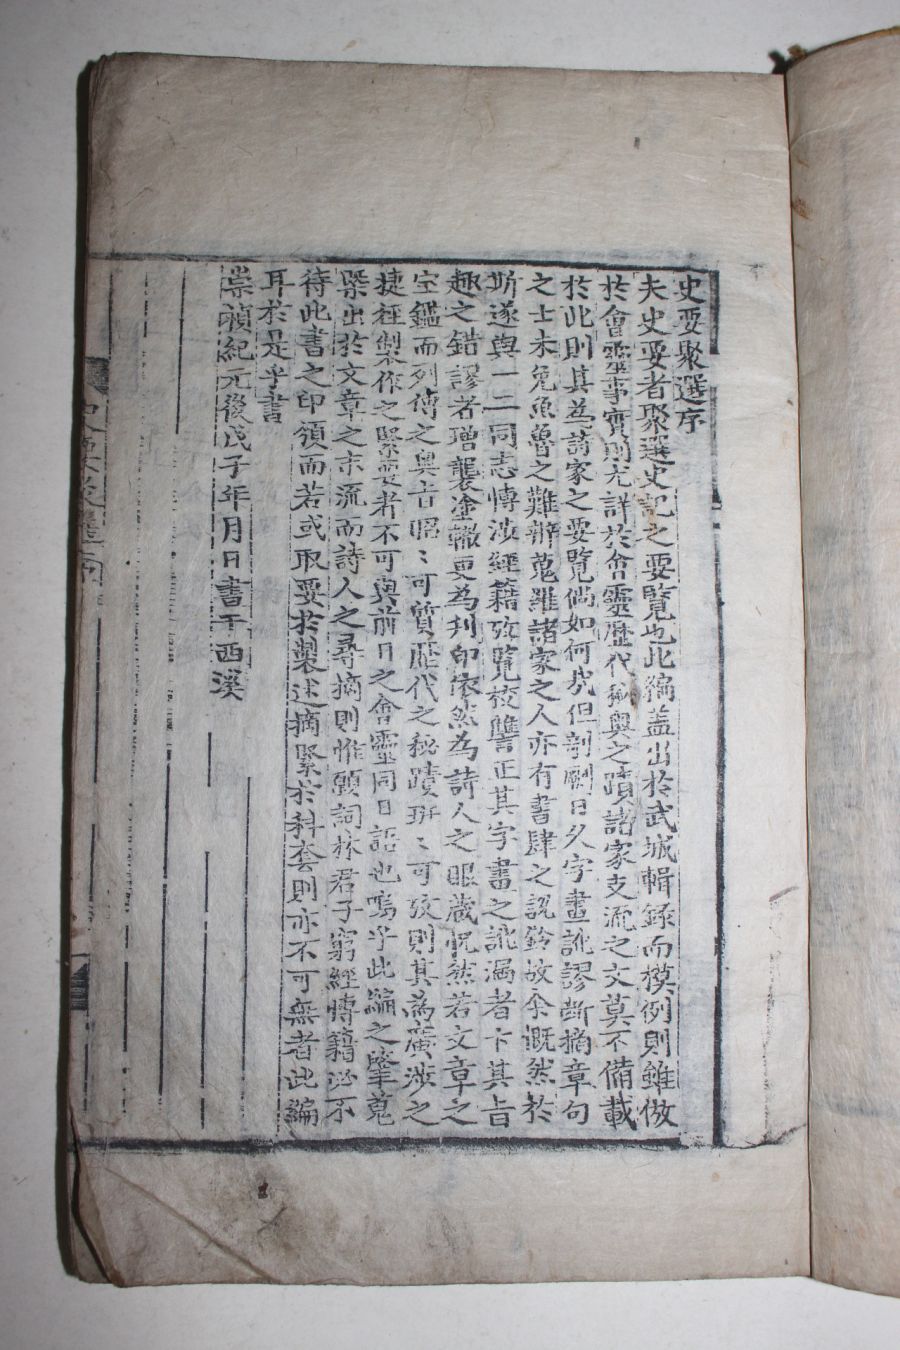 史要聚選序
夫史要者聚選史記之要覽也此編盖出於武城輯錄而模例則雖倣
於會靈事實則尤詳於會靈歷代秘奧之蹟諸家支流之文莫不備載
於此則其爲詩家之要覽倘如何㢤但剞劂日久字畫訛謬斷摘章句
之士未免魚魯之難辨蒐羅諸家之人亦有書肆之說鈴故余慨然於
斯遂與一二同志博涉經籍攷覽校讐正其字畫之訛漏者卞其旨
趣之錯謬者增襲塗轍更爲刊印依然爲詩人之眼藏怳然若文章之
宝鑑而列傳之奧旨昭〻可質歷代之秘蹟班〻可攷則其爲廣涉之
捷徑製作之緊要者不可與前日之會靈同日語也嗚乎此編之肇蒐
槩出於文章之末流而詩人之尋摘則惟願詞林君子窮經博籍必不
待此書之印頒而若或取要於製述摘緊於科套則亦不可無者此編
耳於是乎書
崇禎紀元後戊子年月日書于西溪